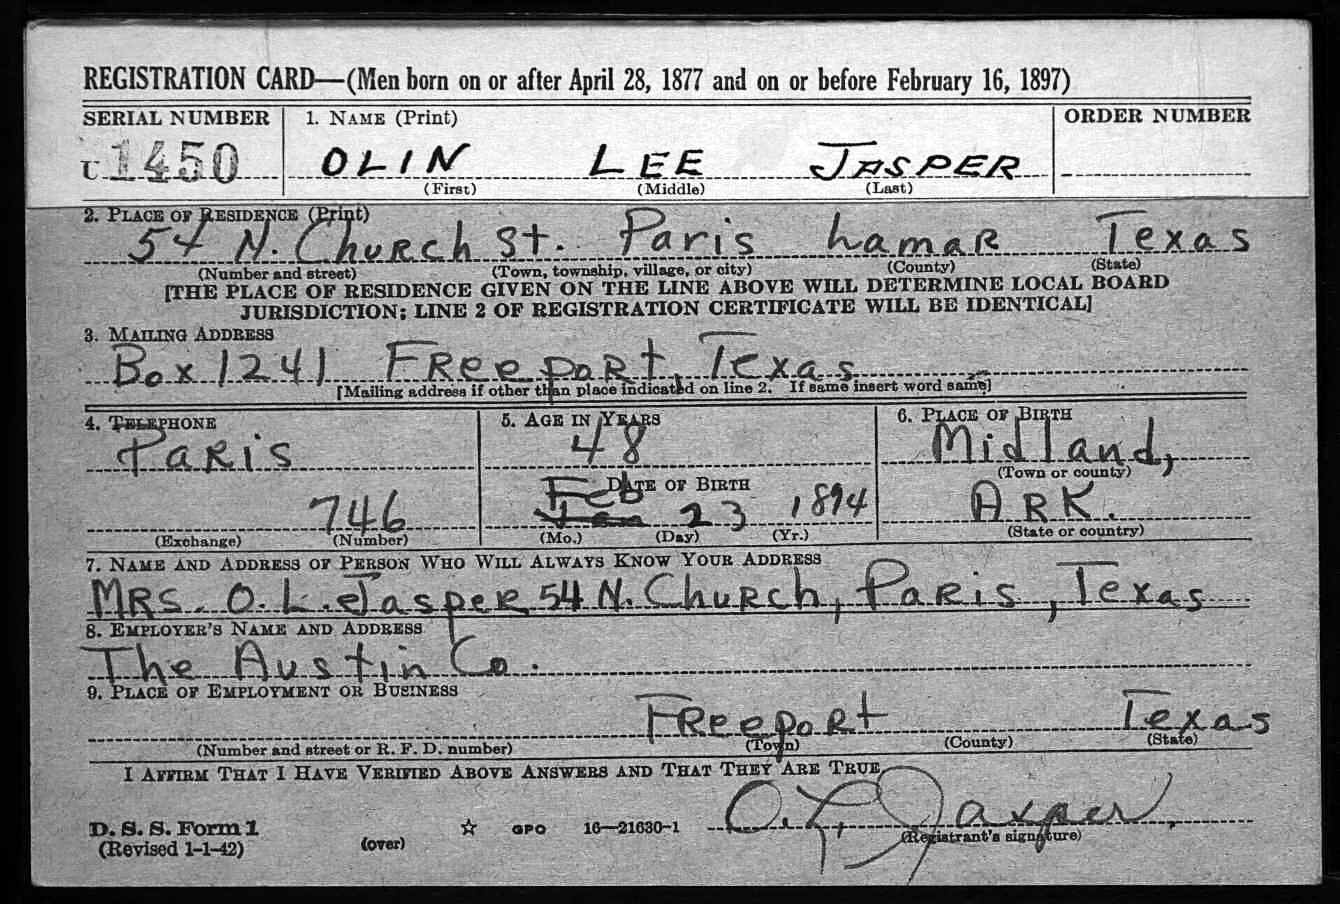 REGISTRATION CARD—(Men born on or after April 28, 1877 and on or before February 16, 1897)
SERIAL NUMBER 1. NAME (Print) ORDER NUMBER
U 1450 OLIN LEE JASPER
(First) (Middle) (Last)
2. PLACE OF RESIDENCE (Print)
54 N. Church St. Paris Lamar Texas
(Number and street) (Town, township, village, or city) (County) (State)
[THE PLACE OF RESIDENCE GIVEN ON THE LINE ABOVE WILL DETERMINE LOCAL BOARD
JURISDICTION; LINE 2 OF REGISTRATION CERTIFICATE WILL BE IDENTICAL]
3. MAILING ADDRESS
Box 1241 Freeport, Texas
[Mailing address if other than place indicated on line 2. If same insert word same]
4. TELEPHONE 5. AGE IN YEARS 6. PLACE OF BIRTH
Paris 48 Midland,
(Town or county)
DATE OF BIRTH
746 Feb Jan 23 1894 ARK.
(Exchange) (Number) (Mo.) (Day) (Yr.) (State or country)
7. NAME AND ADDRESS OF PERSON WHO WILL ALWAYS KNOW YOUR ADDRESS
MRS. O. L. Jasper 54 N. Church, Paris, Texas
8. EMPLOYER'S NAME AND ADDRESS
The Austin Co.
9. PLACE OF EMPLOYMENT OR BUSINESS
Freeport Texas
(Number and street or R. F. D. number) (Town) (County) (State)
I AFFIRM THAT I HAVE VERIFIED ABOVE ANSWERS AND THAT THEY ARE TRUE
D. S. S. Form 1 (over) ☆ GPO 16—21630-1 O. L. Jasper.
(Revised 1-1-42) (Registrant's signature)